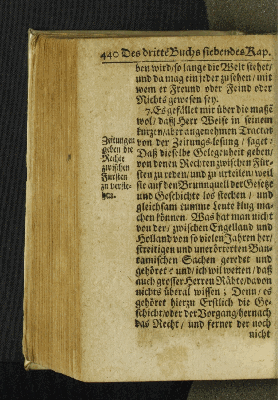 440 Des dritte Buchs siebendes Kap.
ben wird/ so lange die Welt stehet/
und da mag ein jeder zusehen/ mit
wem er Freund oder Feind oder
Nichts gewesen sey.
7. Es gefället mir über die maße
wol/ daß Herr Weise in seinem
kurzen/ aber angenehmen Tractat
von der Zeitungs-lesung/ saget:
Daß dieselbe Gelegenheit geben/
von denen Rechten zwischen Fürsten
zu reden/ und zu urteilen/ weil
sie auf den Brunnquell der Gesetze
und Geschichte los stechen/ und
gleichsam tumme Leute klug machen
können. Was hat man nicht
von der/ zwischen Engelland und
Holland von so vielen Jahren her/
streitigen und unerörterten Bantamischen
Sachen geredet und
gehöret? und/ ich wil wetten/ daß
auch grosser Herren Räthe/ davon
nichts überal wissen; Denn/ es
gehöret hierzu Erstlich die Geschicht/
oder der Vorgang/ hernach
das Recht/ und ferner der noch
nicht
Zeitungen
geben die
Rechte
zwischen
Fürsten
zu verstehen.